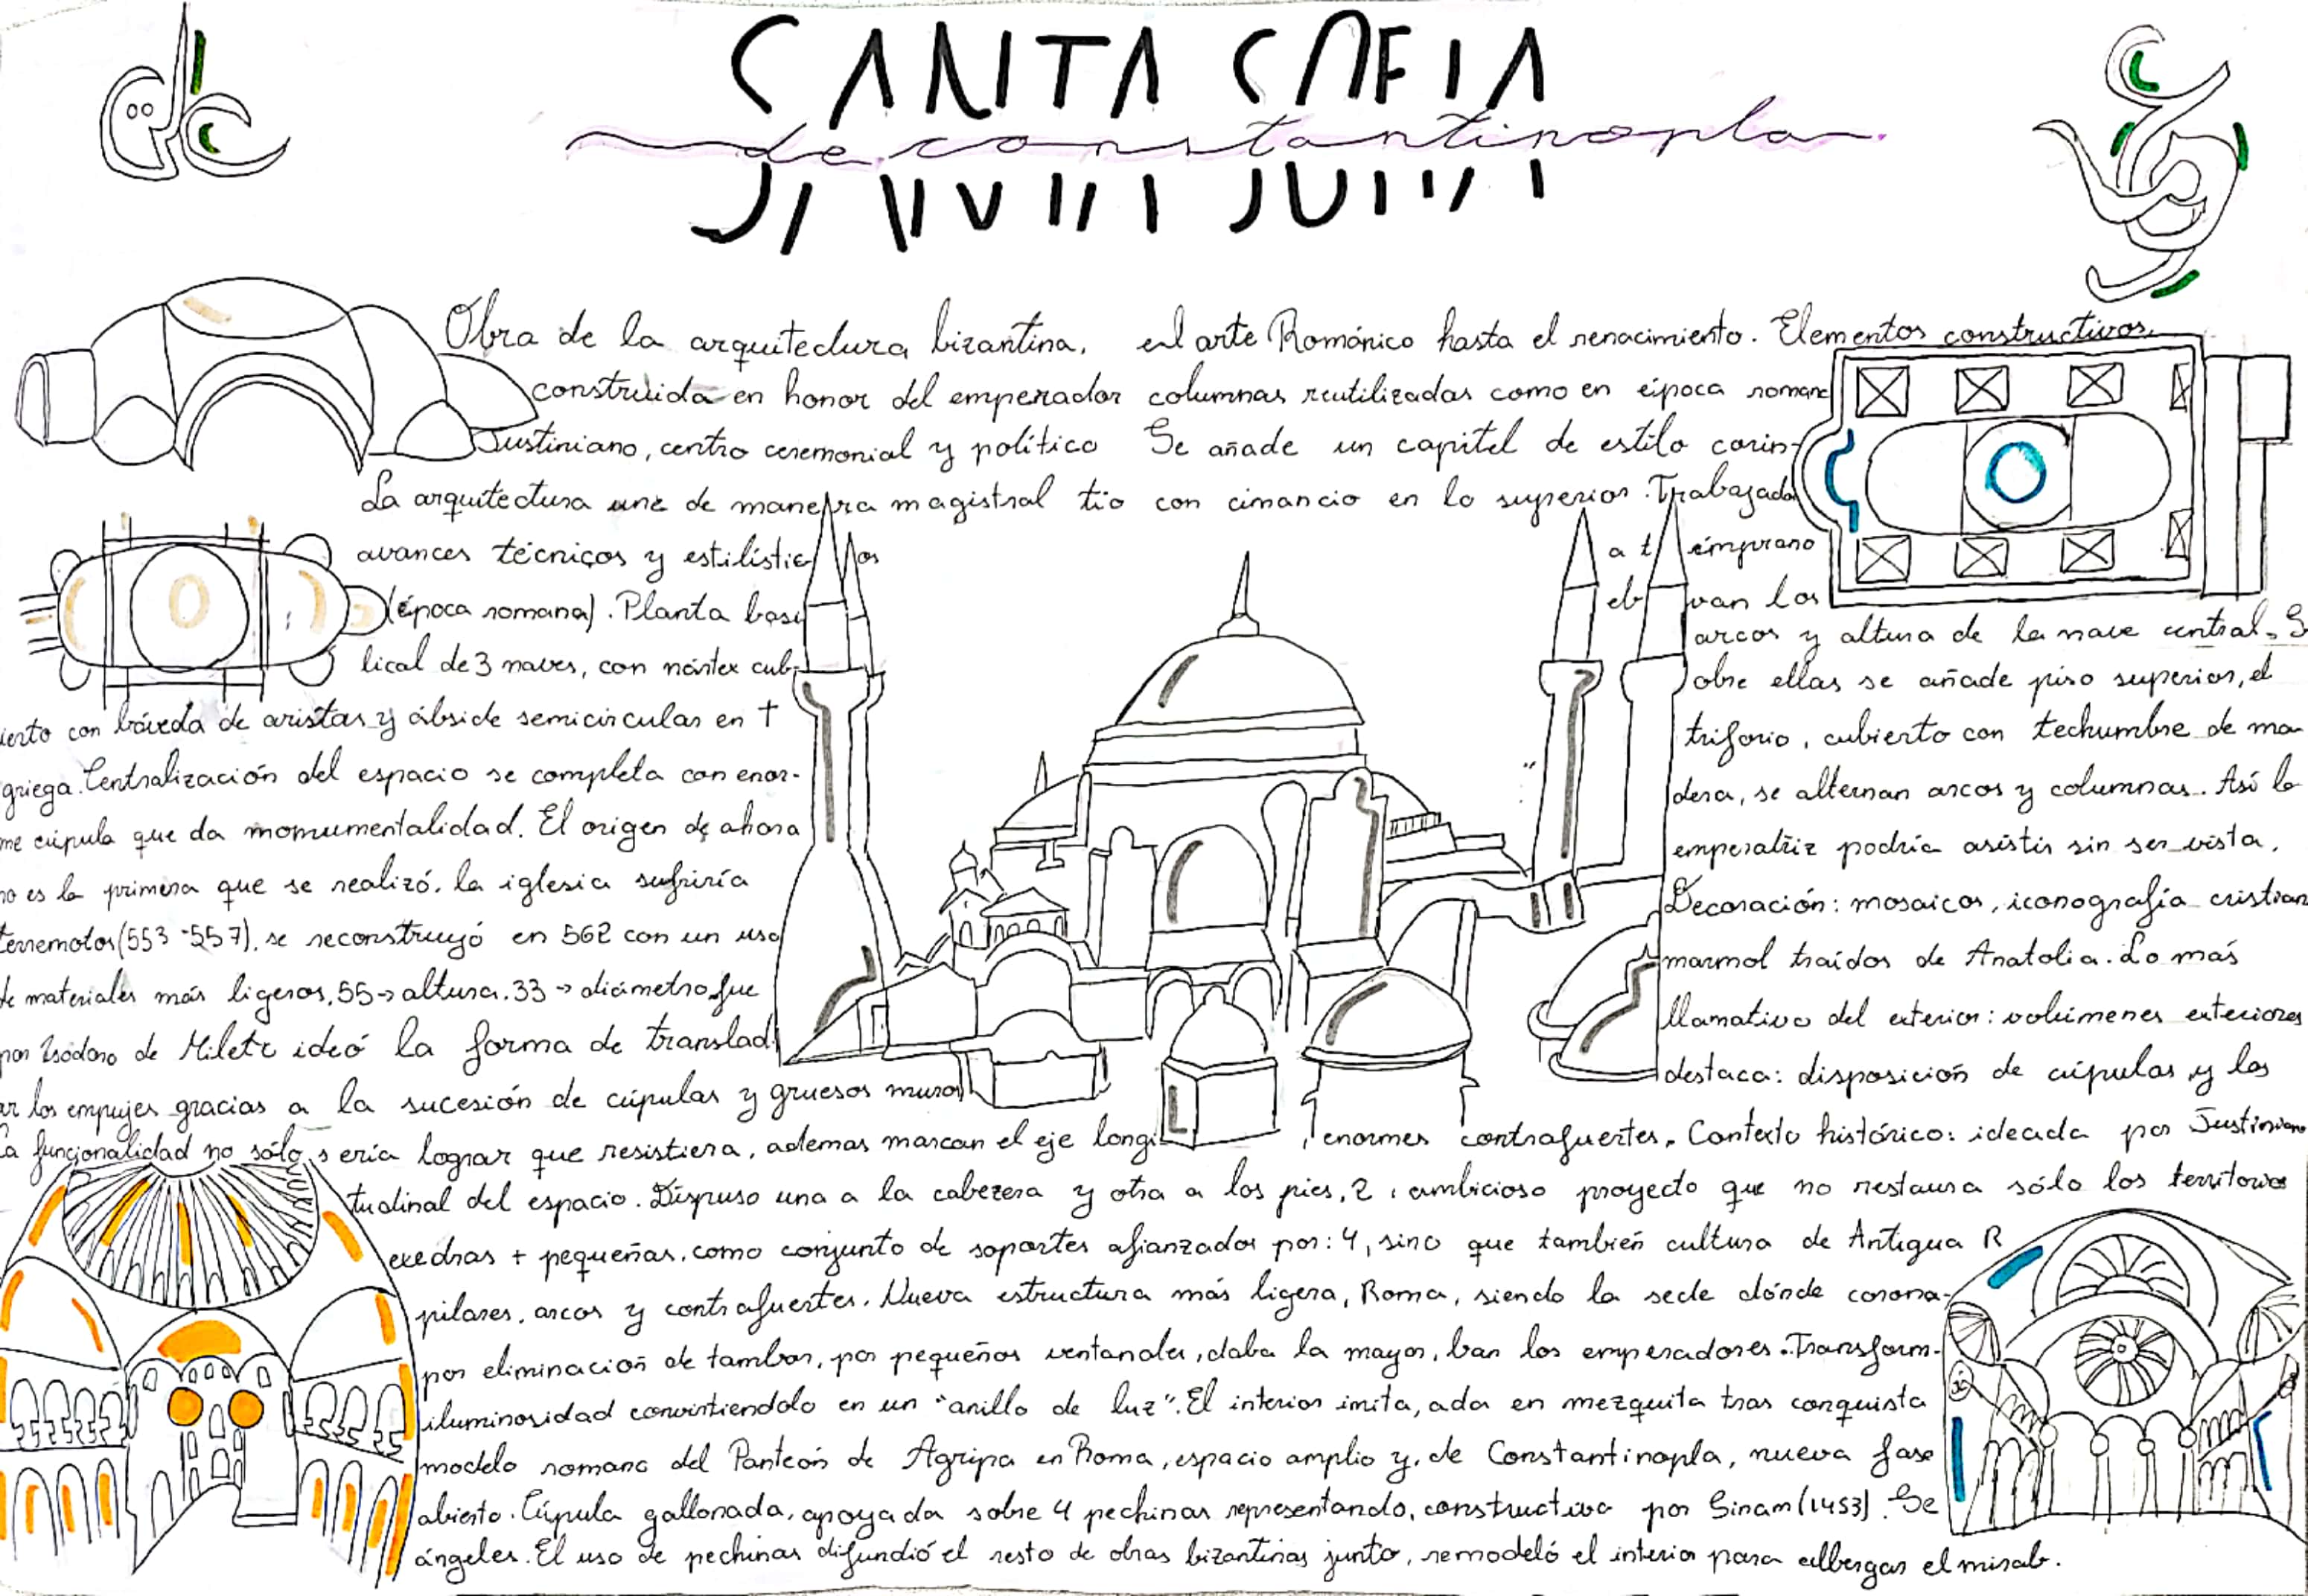 SANTA SOFIA
de constantinopla.
Obra de la arquitectura bizantina,
construida en honor del emperador
Justiniano, centro ceremonial y político
La arquitectura une de manera magistral
avances técnicos y estilísticos
(época romana). Planta basi
lical de 3 naves, con nártex cub-
ierto con bóveda de aristas y ábside semicircular en †
griega. Centralización del espacio se completa con enor-
me cúpula que da monumentalidad. El origen de ahora
no es la primera que se realizó, la iglesia sufriría
terremotos (553-557), se reconstruyó en 562 con un uso
de materiales más ligeros, 55→altura. 33→diámetro, fue
por Isodoro de Mileto ideó la forma de translad
ar los empujes gracias a la sucesión de cúpulas y gruesos muros
La funcionalidad no sólo sería lograr que resistiera, ademas marcan el eje longi
tudinal del espacio. Dispuso una a la cabezera y otra a los pies, 2
exedras + pequeñas, como conjunto de soportes afianzados por: 4
pilares, arcos y contrafuertes. Nueva estructura más ligera,
por eliminación de tambor, por pequeños ventanales, daba la mayor,
iluminosidad convirtiendolo en un "anillo de luz". El interior imita,
modelo romano del Panteón de Agripa en Roma, espacio amplio y,
abierto. Cúpula gallonada, apoyada sobre 4 pechinas representando,
ángeles. El uso de pechinas difundió el resto de obras bizantinas junto,
el arte Románico hasta el renacimiento. Elementos constructivos,
columnas reutilizadas como en época romana
Se añade un capitel de estilo corin-
tio con cimancio en lo superior. Trabajada
a témprano
van los
arcos y altura de la nave central. S
obre ellas se añade piso superior, el
triforio, cubierto con techumbre de ma
dera, se alternan arcos y columnas. Así la
emperatriz podría asistir sin ser vista.
Decoración: mosaicos, iconografía cristian
marmol traídos de Anatolia. Lo más
llamativo del exterior: volúmenes exteriores
destaca: disposición de cúpulas y los
enormes contrafuertes. Contexto histórico: ideada por Justiniano
ambicioso proyecto que no restaura sólo los territorios
sino que también cultura de Antigua R
Roma, siendo la sede dónde corona-
ban los emperadores. Transform-
ada en mezquita tras conquista
de Constantinopla, nueva fase
constructiva por Sinam (1453). Se
remodeló el interior para albergar el mirab.